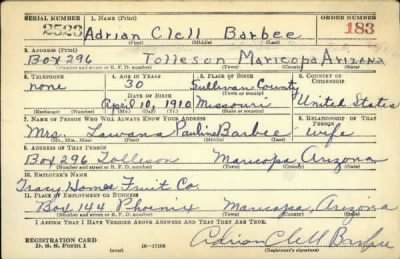 SERIAL NUMBER 1. NAME (Print) ORDER NUMBER
2523 Adrian Clell Barbee 183
(First) (Middle) (Last)
2. ADDRESS (Print)
Box 296 Tolleson Maricopa Arizona
(Number and street or R. F. D. number) (Town) (County) (State)
3. TELEPHONE 4. AGE IN YEARS 5. PLACE OF BIRTH 6. COUNTRY OF CITIZENSHIP
none 30 Sullivan County
DATE OF BIRTH (Town or county)
April 10, 1910 Missouri United States
(Exchange) (Number) (Mo.) (Day) (Yr.) (State or country)
7. NAME OF PERSON WHO WILL ALWAYS KNOW YOUR ADDRESS 8. RELATIONSHIP OF THAT PERSON
Mrs. Lawana Pauline Barbee wife
(Mr., Mrs., Miss) (First) (Middle) (Last)
9. ADDRESS OF THAT PERSON
Box 296 Tolleson Maricopa Arizona
(Number and street or R. F. D. number) (Town) (County) (State)
10. EMPLOYER'S NAME
Tracy Homes Fruit Co.
11. PLACE OF EMPLOYMENT OR BUSINESS
Box 144 Phoenix Maricopa, Arizona
(Number and street or R. F. D. number) (Town) (County) (State)
I AFFIRM THAT I HAVE VERIFIED ABOVE ANSWERS AND THAT THEY ARE TRUE.
REGISTRATION CARD Adrian Clell Barbee
D. S. S. Form 1 (over) (Registrant's signature)